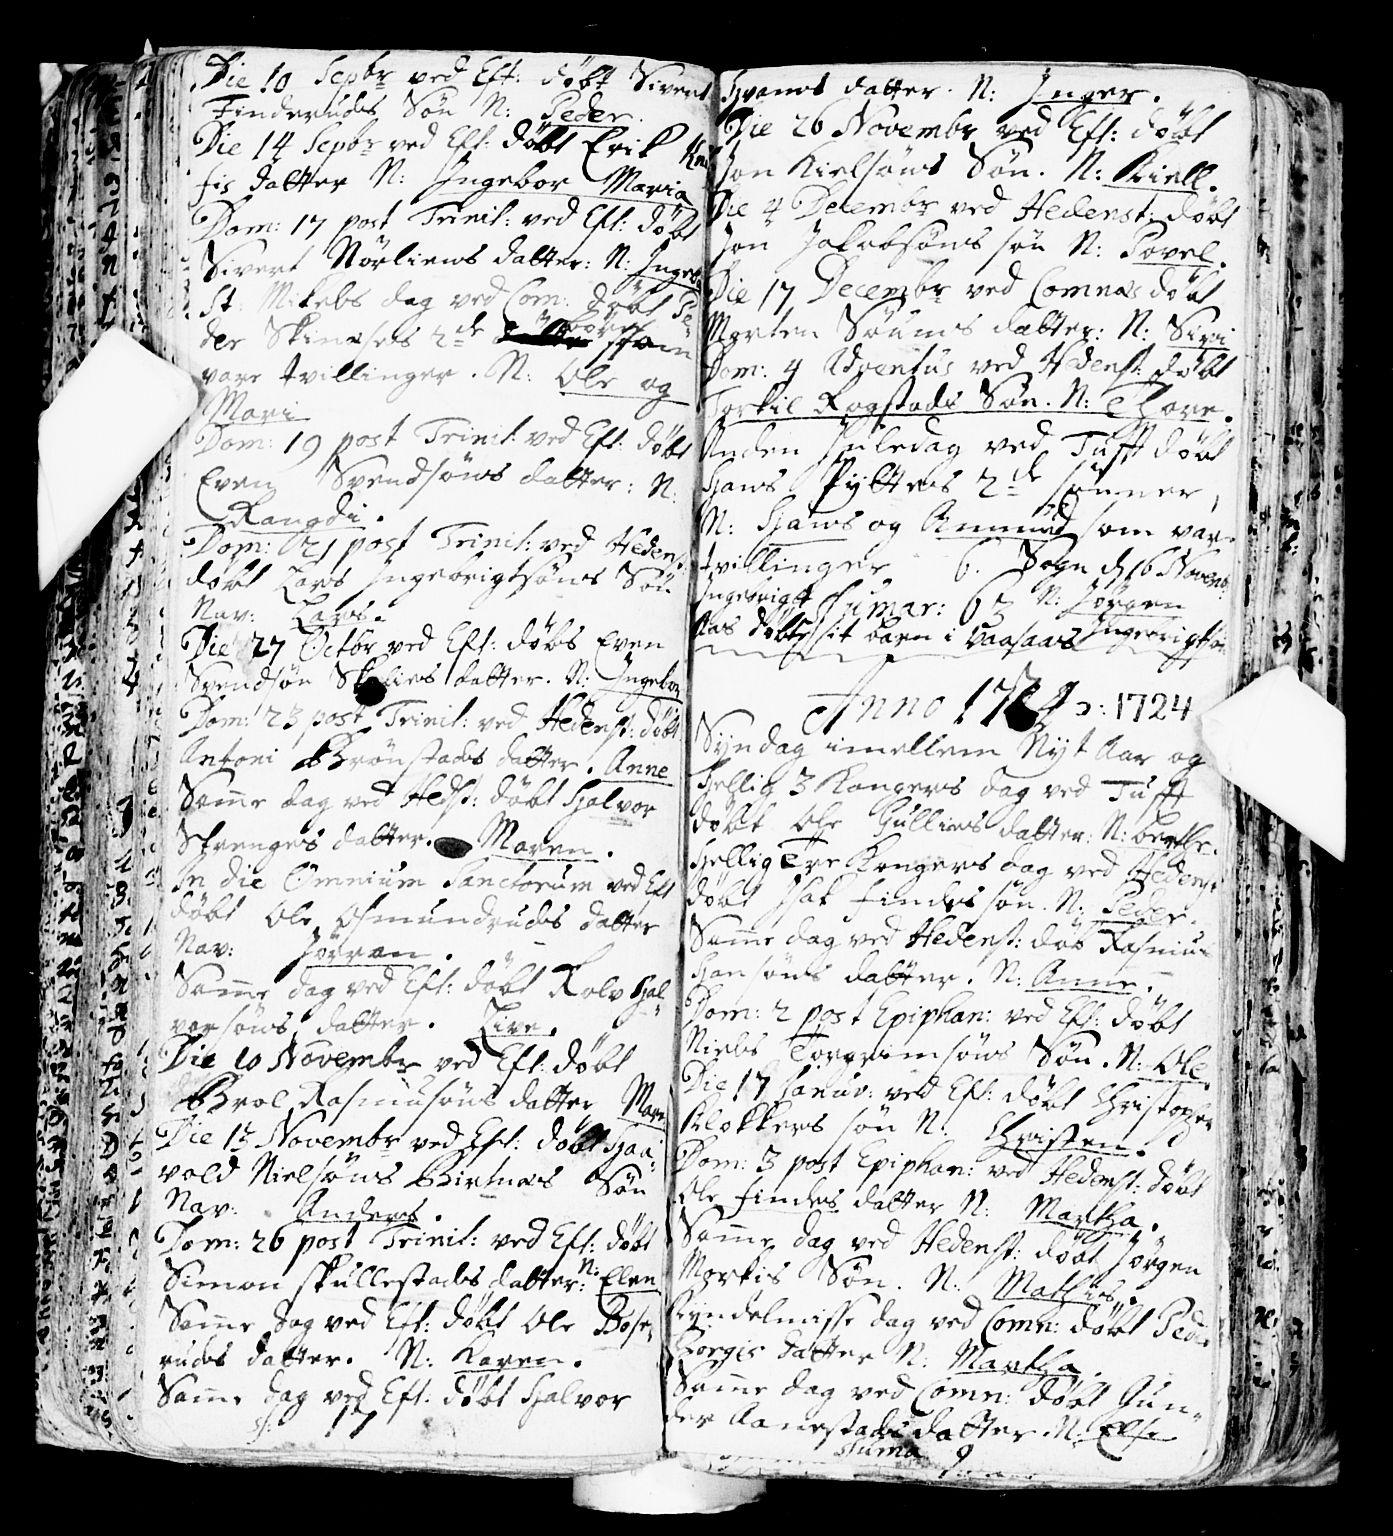 Die 10 Sepbr ved Eft: døbt Sivert
Finderuds Søn N: Peder.
Die 14 Sepbr ved Eft: døbt Erik
fis datter N: Ingebor Maria
Dom: 17 post Trinit: ved Eft: døbt
Sivert Nørliens datter: N: Ingeb
St: Mikels dag ved Com: døbt Pe-
der Skinæses 2de børn som
vare tvillinger. N: Ole og
Mari
Dom: 19 post Trinit: ved Eft: døbt
Even Svendsøns datter: N:
Rangdi.
Dom: 21 post Trinit: ved Hedenst:
døbt Lars Ingebrigtsøns Søn
Nav: Lars.
Die 27 Octbr ved Eft: døbt Even
Svendsøn datter. N: Ingebor
Dom: 23 post Trinit: ved Hedenst: døbt
Antoni Brønstads datter. Anne
Same dag ved Hedst: døbt Halvor
Strenges datter. Maren.
In die Omnium Sanctorum ved Eft
døbt Ole Osmundruds datter
Nav: Jørran.
Same dag ved Eft: døbt Rolv Hal-
vorsøns datter. Live.
Die 10 Novembr ved Eft: døbt
Brol Rasmusøns datter Mare
Die 13 Novembr ved Eft: døbt Haa-
vold Nielsøns Søn
Nav: Anders.
Dom: 26 post Trinit: ved Eft: døbt
Simon Skullestads datter: N: Elen
Same dag ved Eft: døbt Ole Bose-
ruds datter. N: Karen.
Same dag ved Eft: døbt Halvor
S: 17
Hvams datter. N: Inger.
Die 26 Novembr ved Eft: døbt
Jon Kielsøns Søn. N: Kiell.
Die 4 Decembr ved Hedenst: døbt
Jon Jakobsøns søn N: Povel.
Die 17 Decembr ved Comnæs døbt
Morten Søums datter: N: Siri
Dom: 4 Adventus ved Hedenst: døbt
Torkil Rogstads Søn. N: Thore.
Anden Juledag ved Tufft døbt
Hans Pytters 2de sønner,
N: Hans og Ammund som vare
tvillinger 6. Sogn d 16 Novemb:
Ingebrigt Sumar: 63 N: Jørgen
Aas døbt sit barn i Vaasaas Ingebrigtsøn
Anno 1724 ɔ: 1724
Syndag imellem Nyt Aar og
Hellig 3 Kongers dag ved Tufft
døbt Ole Gullies datter: N: berthe.
Hellig Tre Kongers dag ved Hedenst
døbt Isak Findes søn. N: Peder.
Same dag ved Hedenst: døb Rasmus
Hansøns datter. N: Anne.
Dom: 2 post Epiphan: ved Eft: døbt
Niels Torgrimsøns Søn. N: Ole.
Die 17 Januv: ved Eft: døbt Christopher
Klokkers søn N. Christen.
Dom: 3 post Epiphan: ved Hedenst: døbt
Ole Findes datter N: Martha.
Same dag ved Hedenst: døbt Jørgen
Morkis Søn. N: Mathias.
Kyndelmisse dag ved Comn: døbt Peder
Borgis datter N: Martha.
Same dag ved Comn: døbt Gun-
der Aanestads datter. N: Else
Suma 9